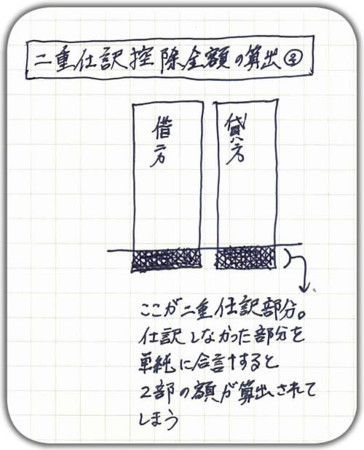 二重仕訳控除金額の算出②
借方
貸方
ここが二重仕訳部分。
仕訳しなかった部分を
単純に合計すると
2部の額が算出されて
しまう